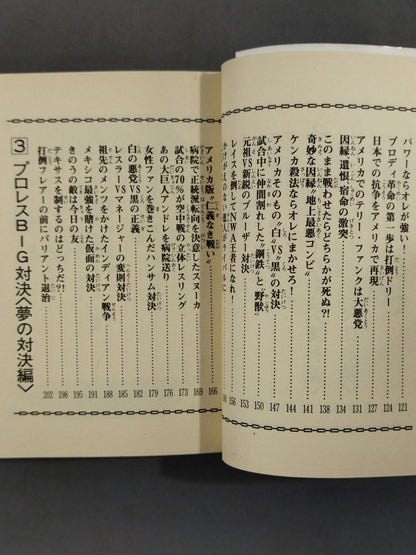 パワーならオレが強い!……121
ブロディ革命の第一歩は打倒ドリー……124
日本での抗争をアメリカで再現……127
アメリカでのテリー・ファンクは大悪党……131
因縁、遺恨、宿命の激突……134
このまま戦わせたらどちらかが死ぬ?!……138
奇妙な因縁“地上最悪コンビ”……141
ケンカ殺法ならオレにまかせろ!……144
アメリカそのもの“白”VS“黒”の対決……147
試合中に仲間割れした“鋼鉄”と“野獣”……150
元祖VS新鋭のブルーザー対決……153
レイスを倒してNWA王者になれ!……156
アメリカ版“仁義なき戦い”……166
病院で正統派転向を決意したスヌーカ……169
試合の70%が空中戦の立体レスリング……173
あの大巨人アンドレを病院送り……176
女性ファンを巻きこんだハンサム対決……179
白の悪党VS黒の正義……182
レスラーVSマネージャーの変則対決……185
祖先のメンツをかけたインディアン戦争……188
メキシコ最強を賭けた仮面の対決……191
きのうの敵は今日の友……195
テキサスを制するのはどっちだ?!……198
打倒フレアーの前にバリアント退治……202
3 プロレスBIG対決〈夢の対決編〉